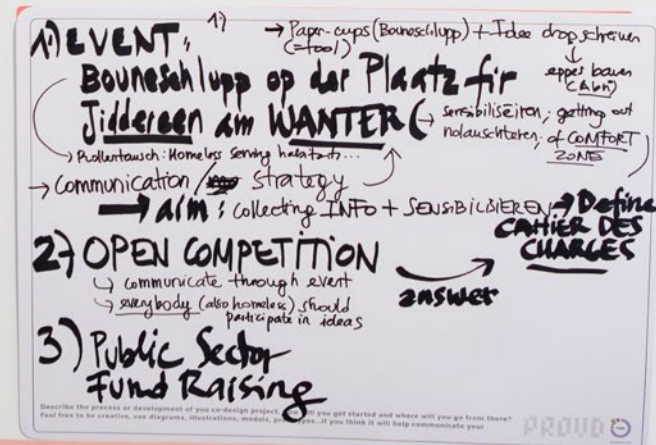 1) → Paper-cups (Bouneschlupp) + Idee drop schreiwen
(=tool)
eppes bauen
1) EVENT:
Bouneschlupp op der Plaatz fir
Jiddereen am WANTER
(→ sensibiliséiren; getting out
nolauschteren; of COMFORT
ZONE
→ Rollentausch: Homeless serving habitants...
→ Communication / strategy
→ aim: collecting INFO + SENSIBILISIEREN → Define
CAHIER DES
CHARGES
2) OPEN COMPETITION
answer
↳ communicate through event
↳ everybody (also homeless) should
participate in ideas
3) Public Sector
Fund Raising
Describe the process or development of you co-design project. How will you get started and where will you go from there?
Feel free to be creative, use diagrams, illustrations, models, prototypes...if you think it will help communicate your
PROUD